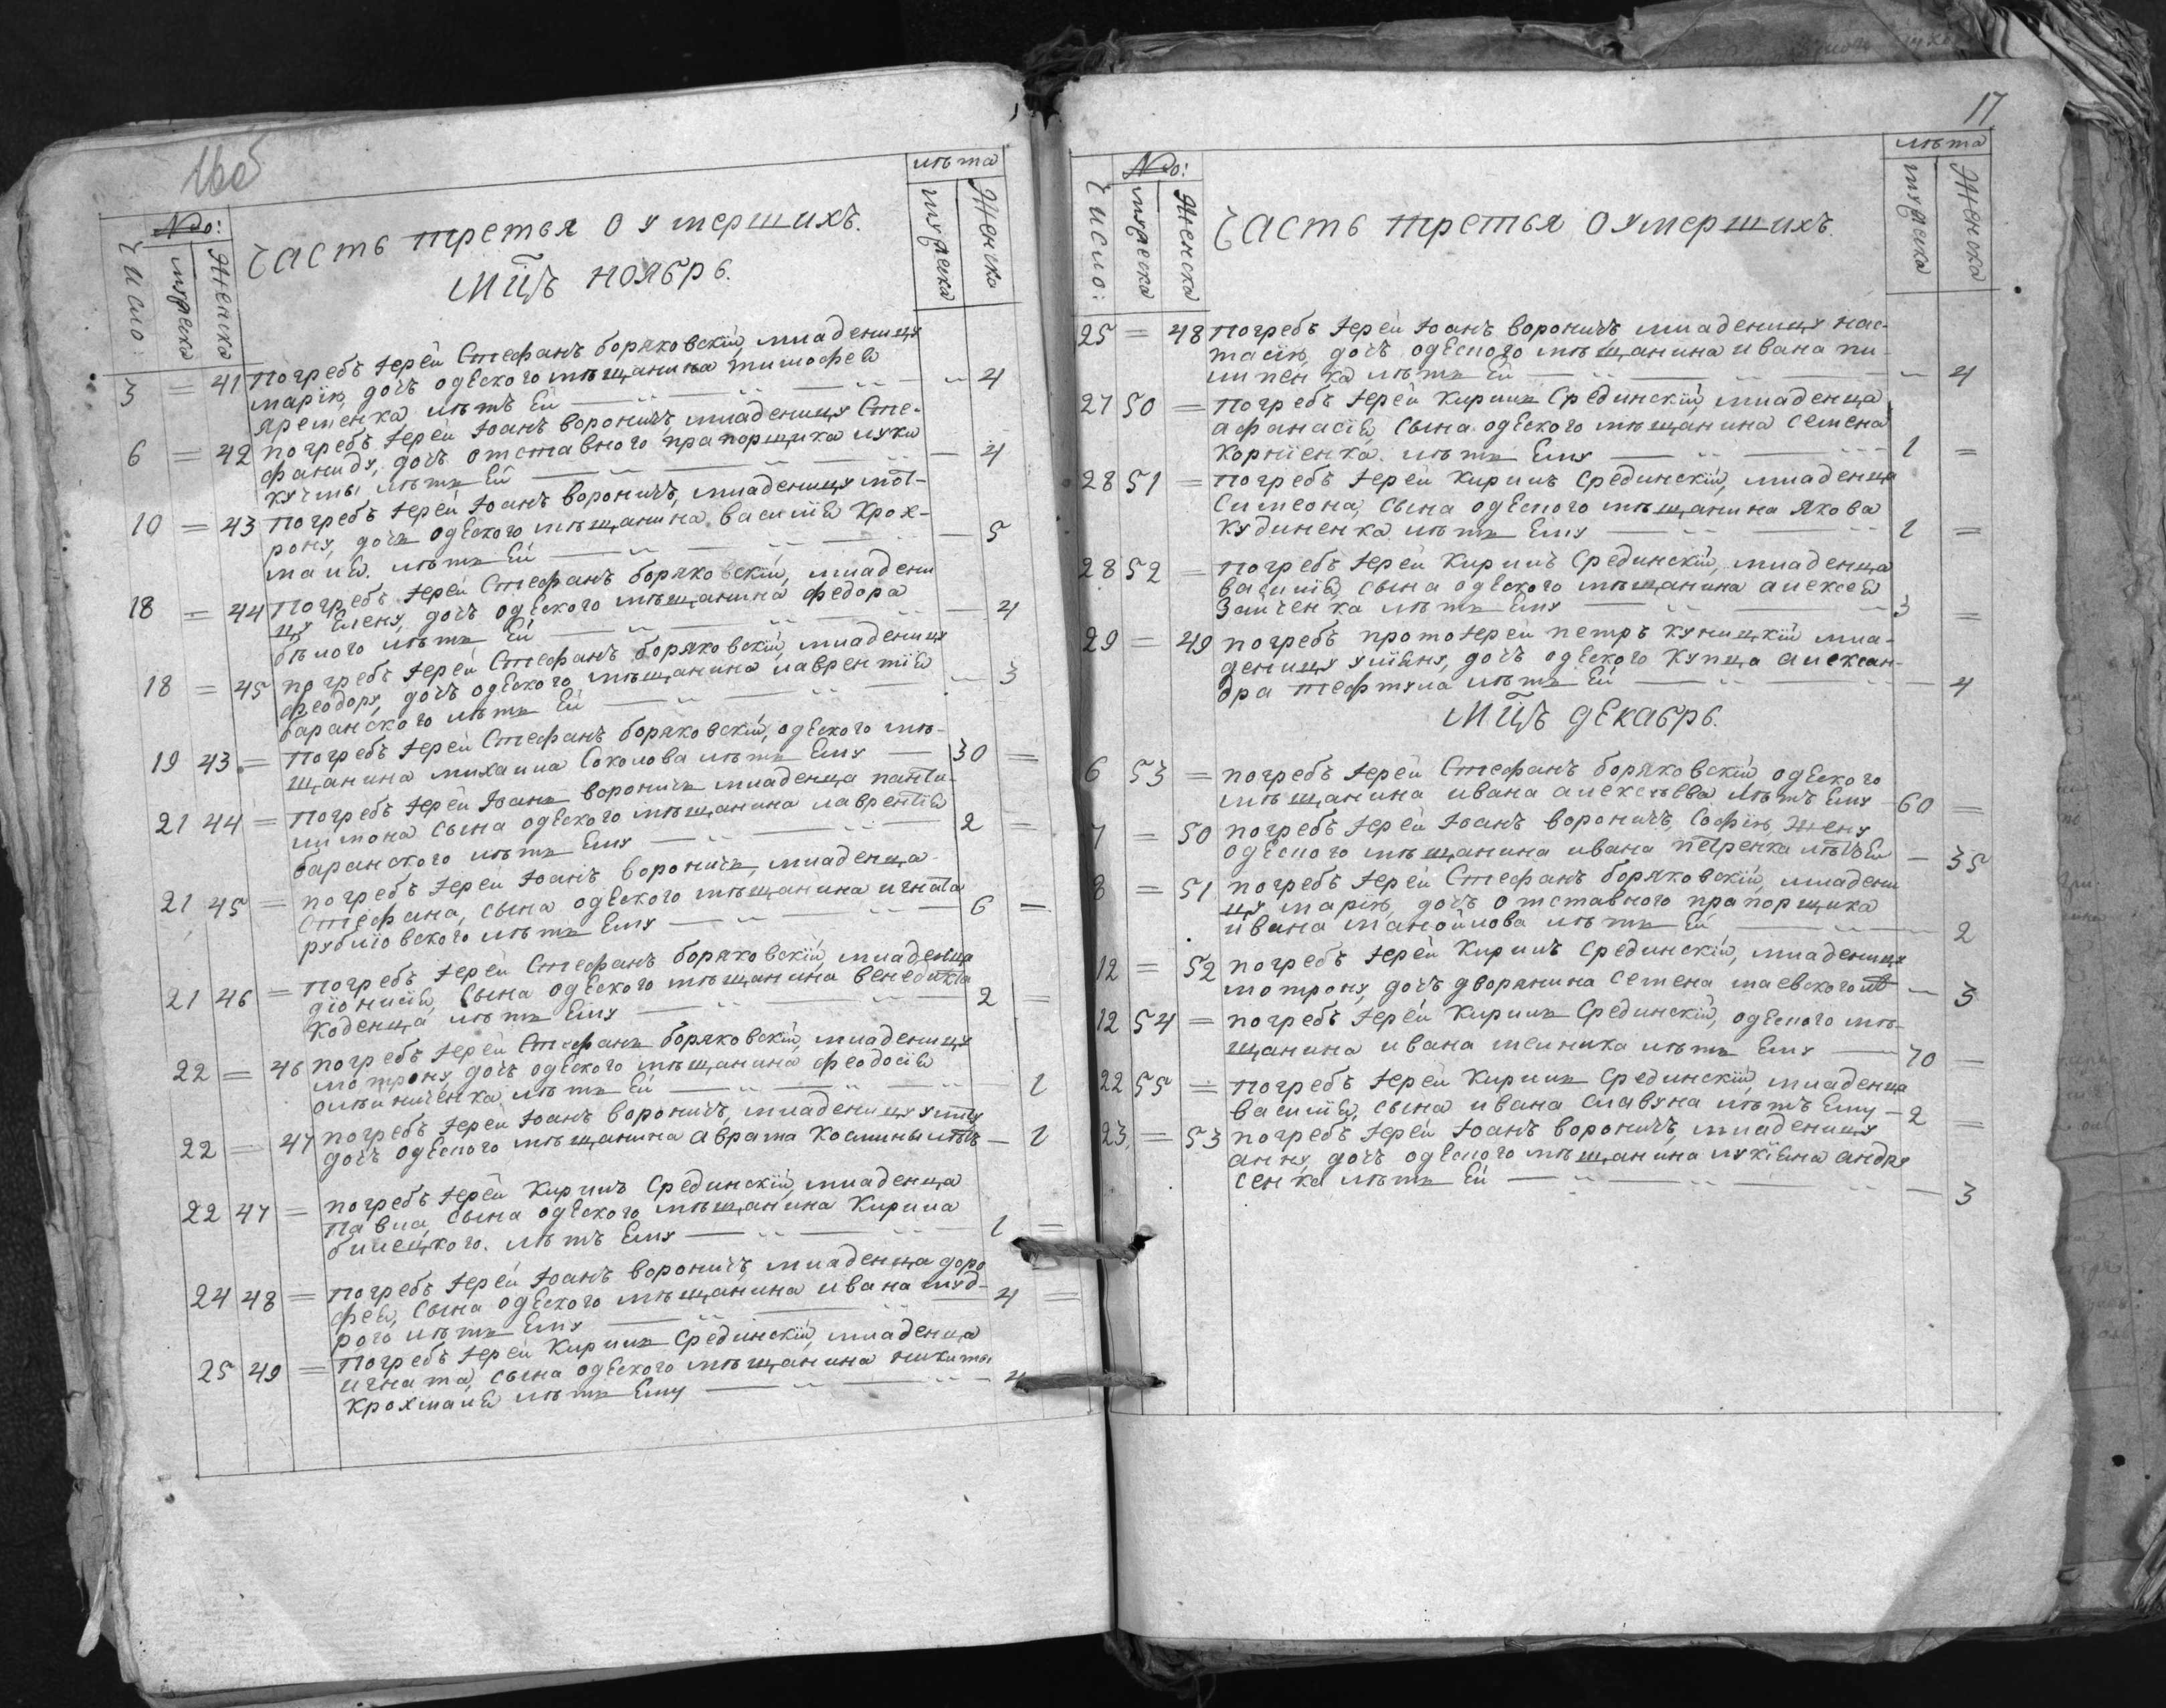 16об
№о:
лѣта
Число:
мужеска
Женска
Часть третья о умершихъ.
мужеска
Женска
Мцъ ноябрь.
3 = 41 погребъ Іерей Стефанъ боряковскій, младеницу
марію, дочь одеского мѣщанина тимофея
яременка лѣтъ Ей — 4
6 = 42 погребъ Іерей Іоанъ вороничъ, младеницу Сте-
фаниду, дочь отставного прапорщика луки
кучмы лѣтъ Ей — 4
10 = 43 погребъ Іерей Іоанъ вороничъ, младеницу мот-
рону, дочь одеского мѣщанина василія Крох-
маля. лѣтъ Ей — 5
18 = 44 погребъ Іерей Стефанъ боряковскій, младени
цу Елену, дочь одеского мѣщанина федора
бѣлого лѣтъ Ей — 4
18 = 45 погребъ Іерей Стефанъ боряковскій, младеницу
феодору, дочь одеского мѣщанина лаврентія
баранского лѣтъ Ей — 3
19 43 = погребъ Іерей Стефанъ боряковскій, одеского мѣ-
щанина михаила Соколова лѣтъ Ему — 30 =
21 44 = погребъ Іерей Іоанъ вороничъ младенца панте-
лимона сына одеского мѣщанина лаврентія
баранского лѣтъ Ему — 2 =
21 45 = погребъ Іерей Іоанъ вороничъ, младенца
Стефана, сына одеского мѣщанина игната
рублювского лѣтъ Ему — 6 =
21 46 = погребъ Іерей Стефанъ боряковскій, младенца
діонисія, Сына одеского мѣщанина венедикта
коденца лѣтъ Ему — 2 =
22 = 46 погребъ Іерей Стефанъ боряковскій, младеницу
мотрону, дочь одеского мѣщанина феодосія
олѣйниченка лѣтъ Ей — 1
22 = 47 погребъ Іерей Іоанъ вороничъ, младеницу
дочь одеского мѣщанина аврама Калины лѣтъ — 1
22 47 = погребъ Іерей Кирилъ Срединскій, младенца
павла, Сына одеского мѣщанина Кирила
билецкого. лѣтъ Ему — 1 =
24 48 = погребъ Іерей Іоанъ вороничъ, младенца доро
фея, Сына одеского мѣщанина ивана муд-
рого лѣтъ Ему — 4 =
25 49 = погребъ Іерей Кирилъ Срединскій, младенца
игната, Сына одеского мѣщанина никиты
Крохмаля лѣтъ Ему — 4
17
№о:
лѣта
Число:
мужеска
Женска
Часть третья о умершихъ.
мужеска
Женска
25 = 48 погребъ Іерей Іоанъ вороничъ, младеницу нас-
тасію, дочь одеского мѣщанина ивана пи-
липенка лѣтъ Ей — 4
27 50 = погребъ Іерей Кирилъ Срединскій, младенца
афанасія, Сына одеского мѣщанина семена
Корніенка. лѣтъ Ему — 1 =
28 51 = погребъ Іерей Кирилъ Срединскій, младенца
Симеона, Сына одеского мѣщанина якова
Кудиненка лѣтъ Ему — 1 =
28 52 = погребъ Іерей Кирилъ Срединскій, младенца
василія, Сына одеского мѣщанина алексея
Зайченка лѣтъ Ему — 3 =
29 = 49 погребъ протоіерей петръ Куницкій мла-
деницу уліяну, дочь одеского купца алексан-
дра тефтула лѣтъ Ей — 4
Мцъ декабрь.
6 53 = погребъ Іерей Стефанъ боряковскій, одеского
мѣщанина ивана алексѣева лѣтъ Ему — 60 =
7 = 50 погребъ Іерей Іоанъ вороничъ, Софію, жену
одеского мѣщанина ивана петренка лѣтъ Ей — 35
8 = 51 погребъ Іерей Стефанъ боряковскій, младени
цу марію, дочь отставного прапорщика
ивана манойлова лѣтъ Ей — 2
12 = 52 погребъ Іерей Кирилъ Срединскій, младеницу
мотрону, дочь дворянина семена маевского лѣт — 3
12 54 = погребъ Іерей Кирилъ Срединскій, одеского мѣ-
щанина ивана мелника лѣтъ Ему — 70 =
22 55 = погребъ Іерей Кирилъ Срединскій, младенца
василія, сына ивана славуна лѣтъ Ему — 2 =
23 = 53 погребъ Іерей Іоанъ вороничъ, младеницу
анну, дочь одеского мѣщанина лукіяна андру
сенка лѣтъ Ей — 3